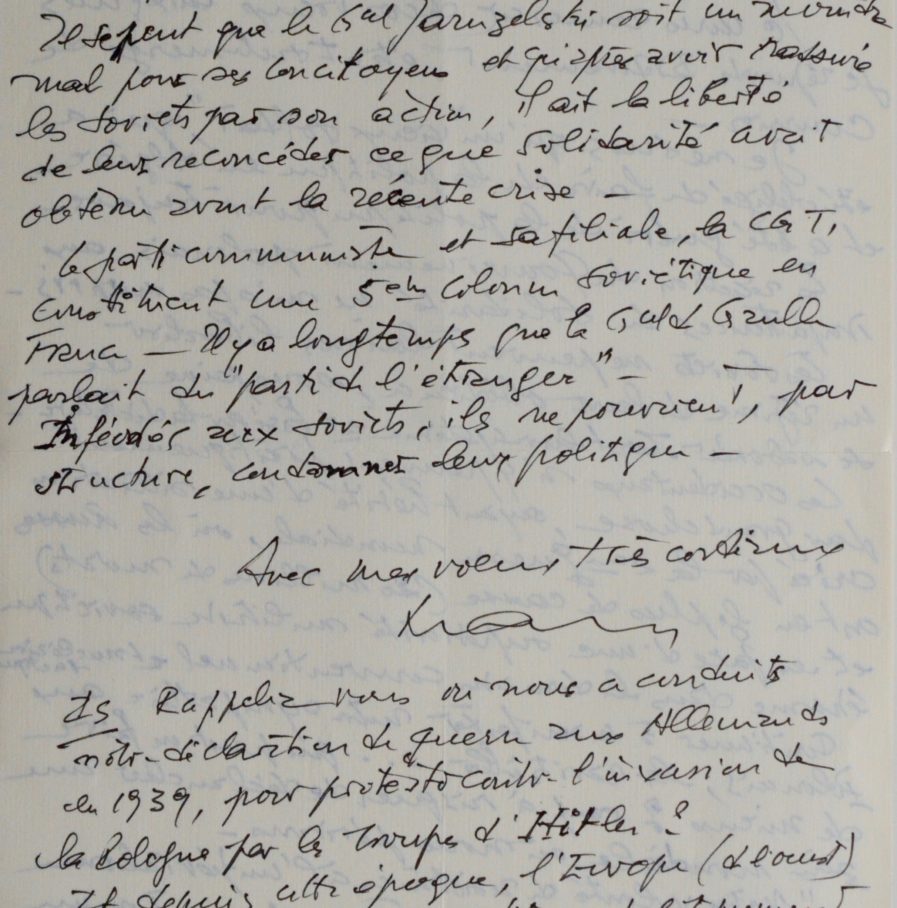 Il se peut que le Gal Jaruzelski soit un moindre
mal pour ses concitoyens et qu'après avoir rassuré
les soviets par son action, il ait la liberté
de leur reconcéder ce que Solidarité avait
obtenu avant la récente crise —
Le parti communiste et sa filiale, la CGT,
constituent une 5ème colonne soviétique en
France — Il y a longtemps que le Gal de Gaulle
parlait du "parti de l'étranger" —
Inféodés aux soviets, ils ne pouvaient, par
structure, condamner leur politique —
Avec mes voeux très cordiaux
PS Rappelez vous où nous a conduits
notre déclaration de guerre aux Allemands
en 1939, pour protester contre l'invasion de
la Pologne par les troupes d'Hitler ?
Et depuis cette époque, l'Europe (de l'ouest)